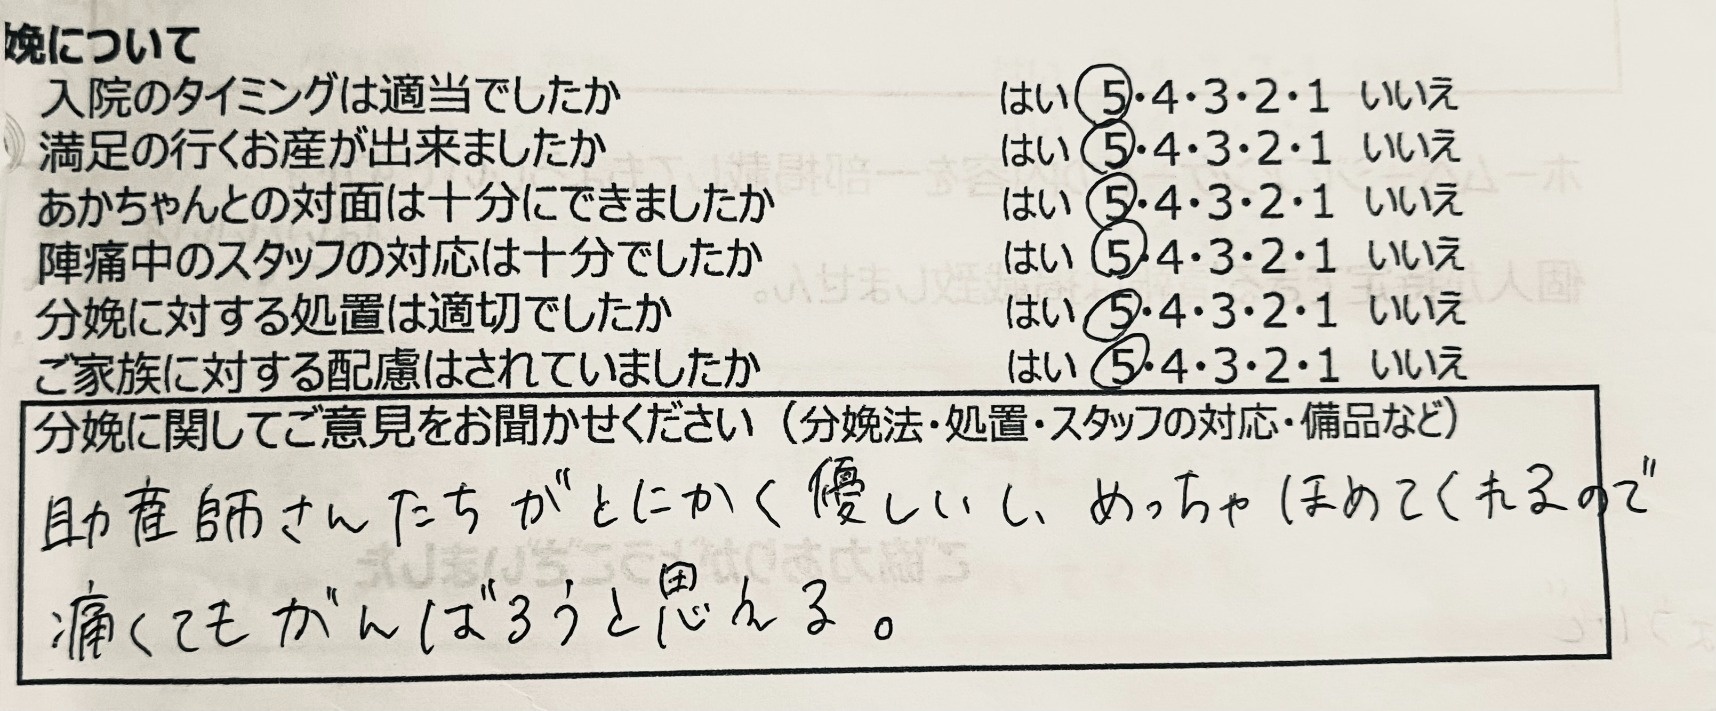 娩について
入院のタイミングは適当でしたか はい 5・4・3・2・1 いいえ
満足の行くお産が出来ましたか はい 5・4・3・2・1 いいえ
あかちゃんとの対面は十分にできましたか はい 5・4・3・2・1 いいえ
陣痛中のスタッフの対応は十分でしたか はい 5・4・3・2・1 いいえ
分娩に対する処置は適切でしたか はい 5・4・3・2・1 いいえ
ご家族に対する配慮はされていましたか はい 5・4・3・2・1 いいえ
分娩に関してご意見をお聞かせください（分娩法・処置・スタッフの対応・備品など）
助産師さんたちがとにかく優しいし、めっちゃほめてくれるので
痛くてもがんばろうと思える。
ご協力ありがとうございました